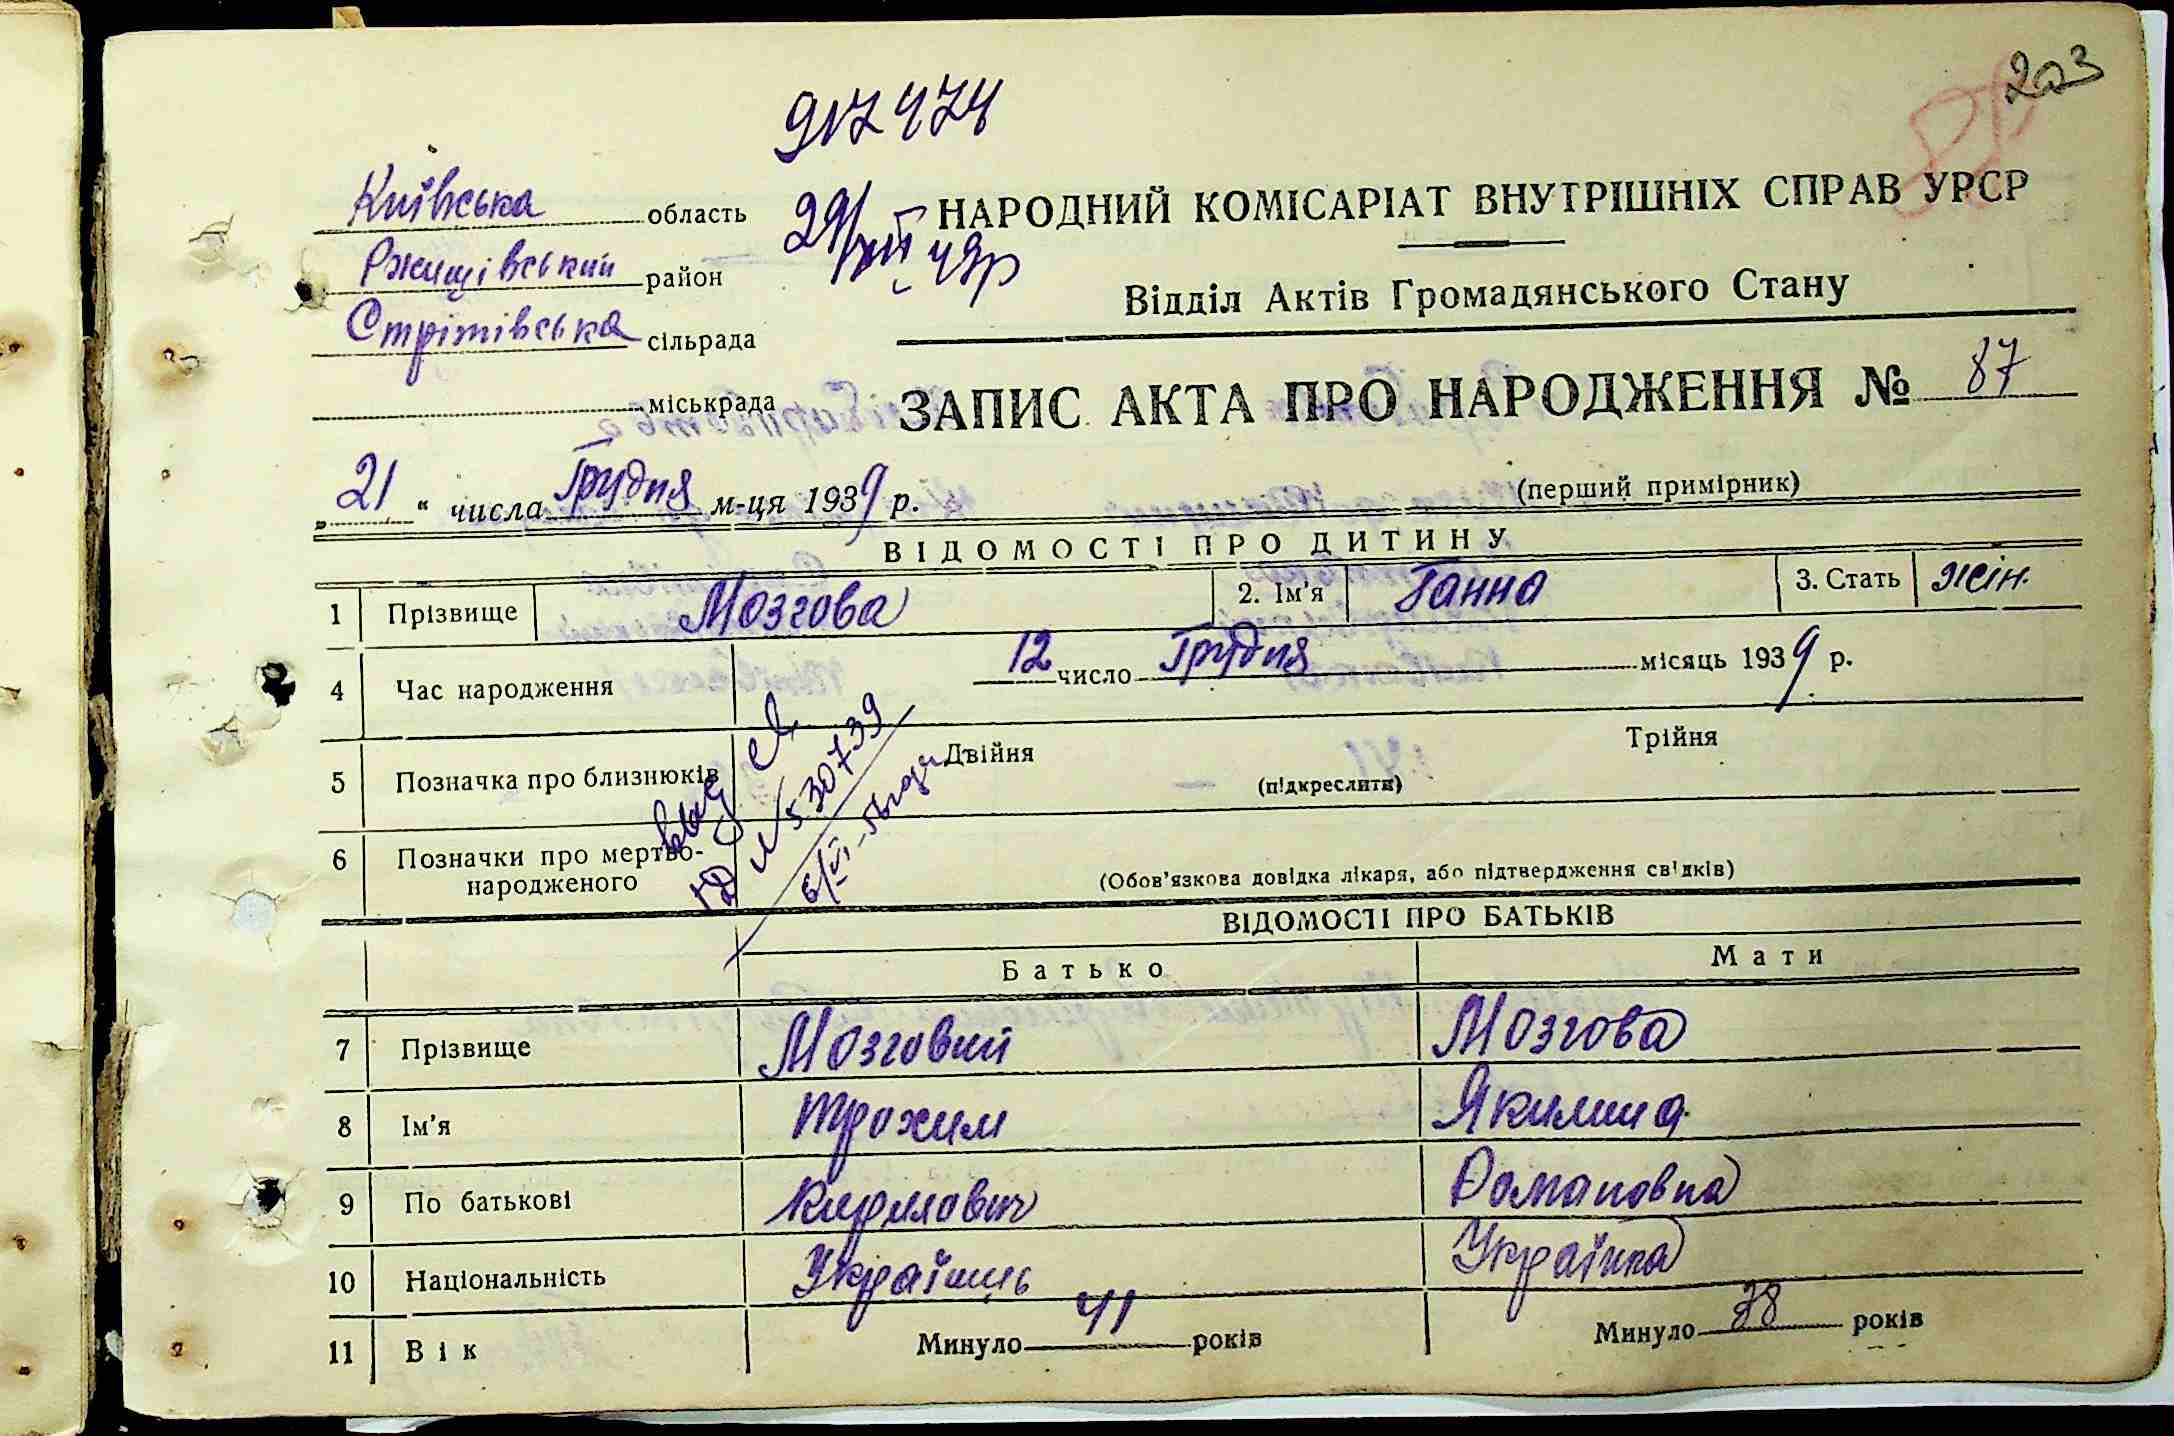 203
88
917474
29/VIII 49р
Київська область
НАРОДНИЙ КОМІСАРІАТ ВНУТРІШНІХ СПРАВ УРСР
Ржищівський район
Відділ Актів Громадянського Стану
Стрітівська сільрада
міськрада
ЗАПИС АКТА ПРО НАРОДЖЕННЯ № 87
„ 21 “ числа Грудня м-ця 1939 р.
(перший примірник)
ВІДОМОСТІ ПРО ДИТИНУ
1 Прізвище Мозгова 2. Ім'я Ганна 3. Стать жін.
4 Час народження 12 число Грудня місяць 1939 р.
5 Позначка про близнюків Двійня (підкреслити) Трійня
выд св
№ 530739
6/VI-56 года
6 Позначки про мертво-
народженого
(Обов'язкова довідка лікаря, або підтвердження свідків)
ВІДОМОСТІ ПРО БАТЬКІВ
Батько Мати
7 Прізвище Мозговий Мозгова
8 Ім'я Трохим Якилина
9 По батькові Кирилович Романовна
10 Національність Українець Українка
11 Вік Минуло 41 років Минуло 38 років